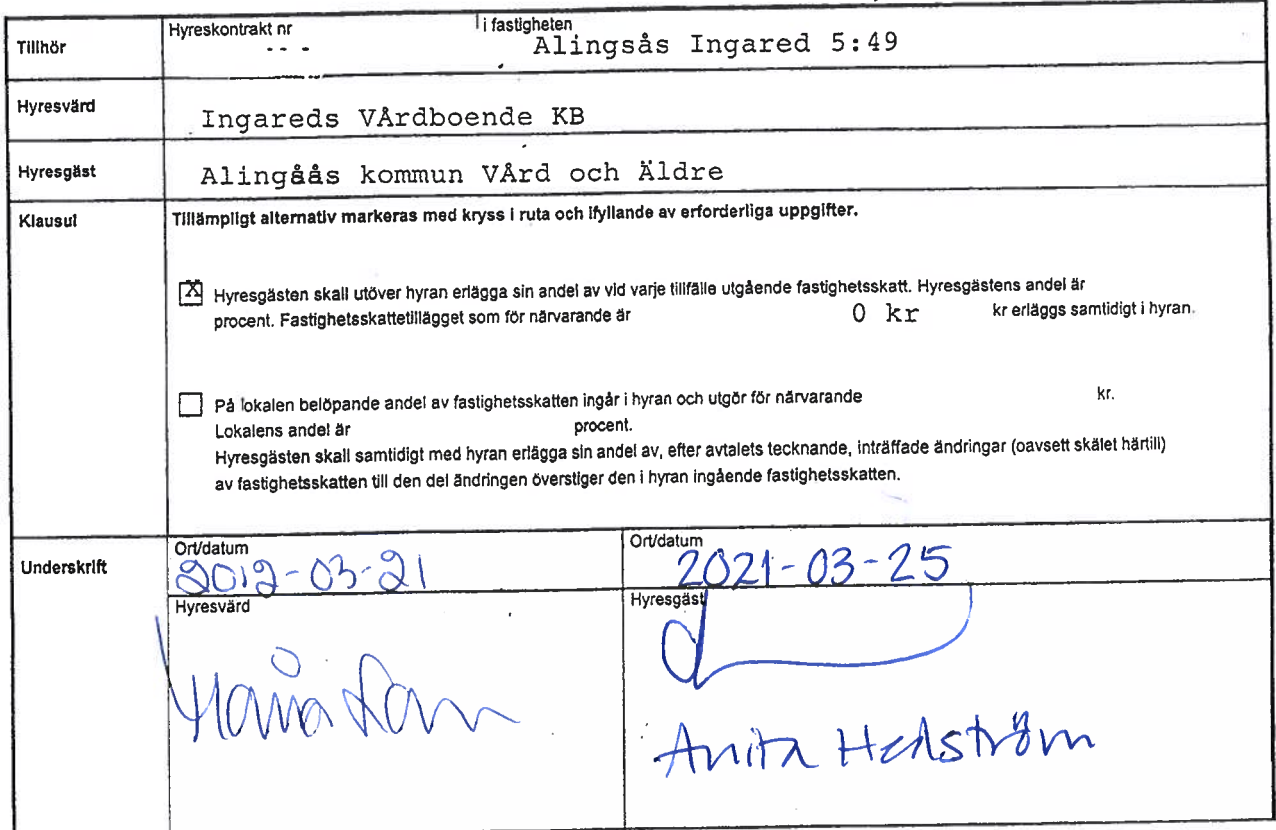 Tillhör
Hyreskontrakt nr
i fastigheten
-- -
Alingsås Ingared 5:49
Hyresvärd
Ingareds VÅrdboende KB
Hyresgäst
Alingåås kommun VÅrd och Äldre
Klausul
Tillämpligt alternativ markeras med kryss i ruta och ifyllande av erforderliga uppgifter.
X Hyresgästen skall utöver hyran erlägga sin andel av vid varje tillfälle utgående fastighetsskatt. Hyresgästens andel är
procent. Fastighetsskattetillägget som för närvarande är 0 kr kr erläggs samtidigt i hyran.
På lokalen belöpande andel av fastighetsskatten ingår i hyran och utgör för närvarande kr.
Lokalens andel är procent.
Hyresgästen skall samtidigt med hyran erlägga sin andel av, efter avtalets tecknande, inträffade ändringar (oavsett skälet härtill)
av fastighetsskatten till den del ändringen överstiger den i hyran ingående fastighetsskatten.
Underskrift
Ort/datum
2012-03-21
Ort/datum
2021-03-25
Hyresvärd
Hyresgäst
Anita Hedström